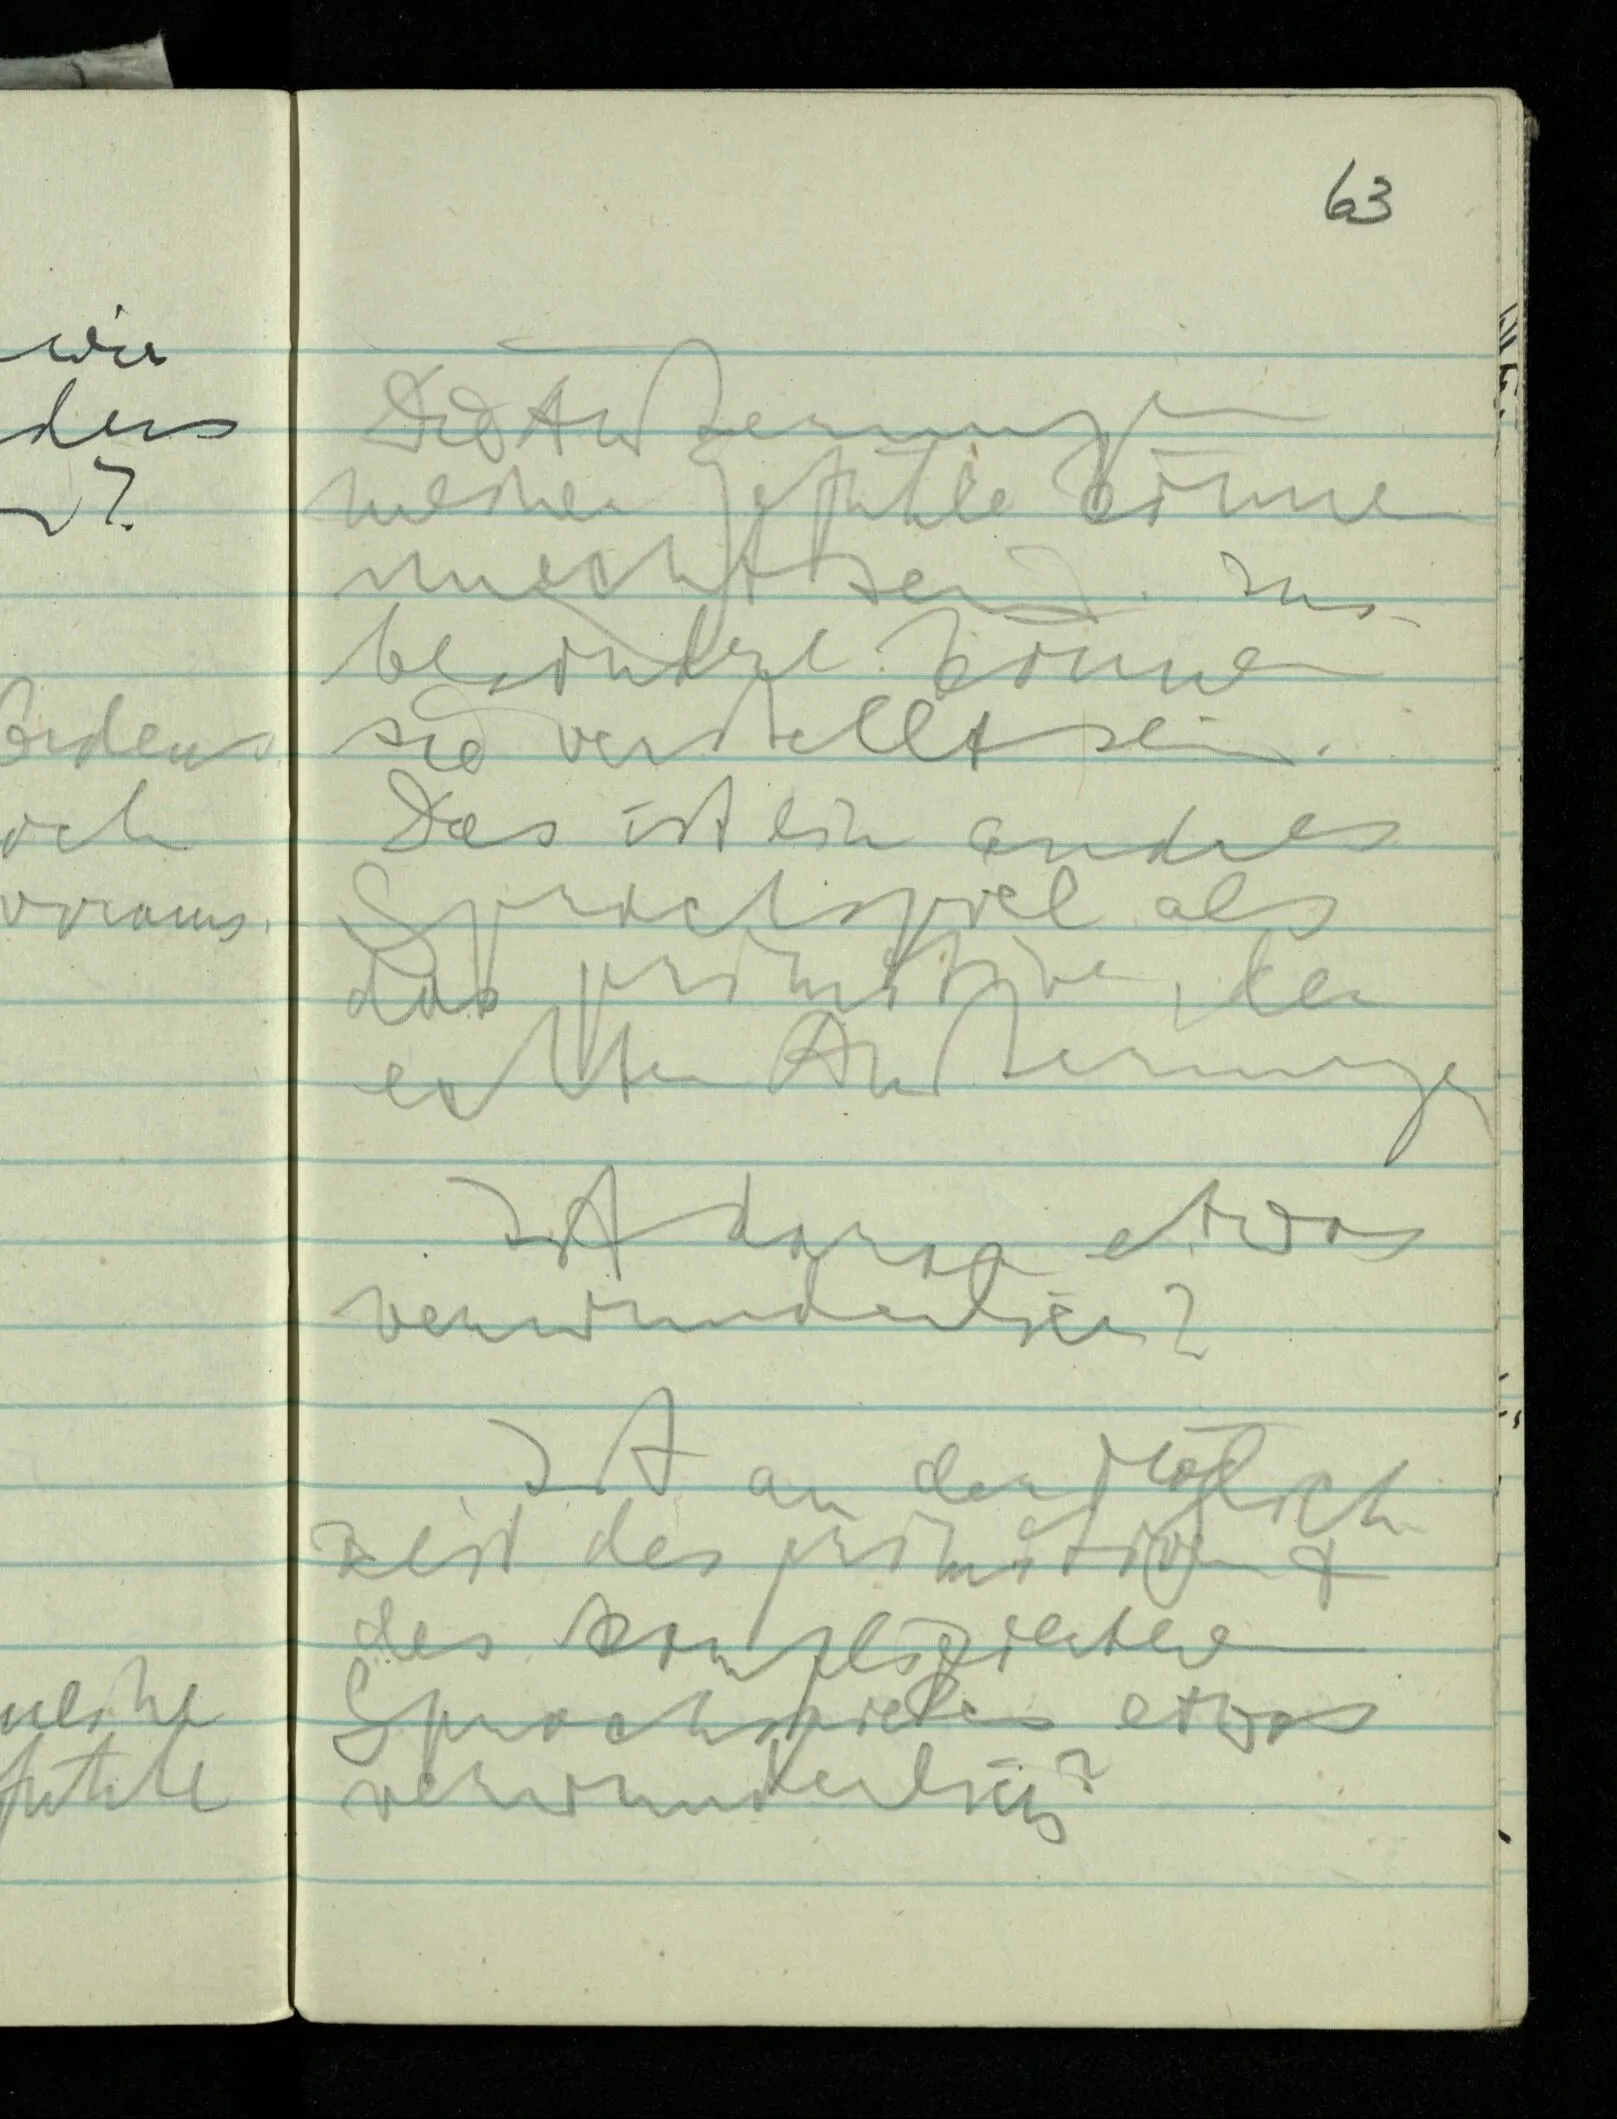 63
wir
ders
?
och
voraus.
meine
fühle
Die Äußerungen
meiner Gefühle können
unecht sein. Ins-
besondere können
sie verstellt sein.
Das ist ein andres
Sprachspiel als
das primitive, der
echten Äußerungen
Ist daran etwas
verwunderlich?
Ist an der Möglich-
keit des primitiven &
des komplizierten
Sprachspieles etwas
verwunderlich?